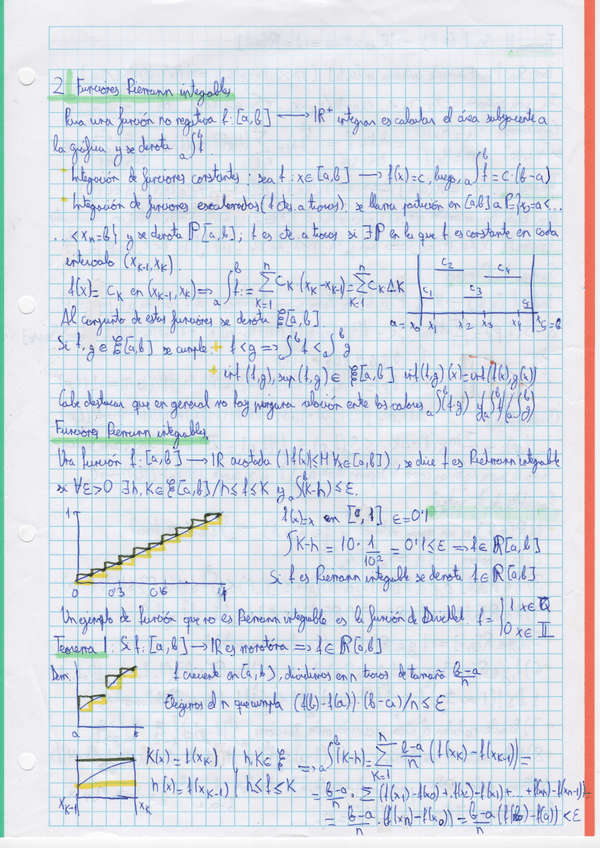 2 Funciones Riemann integrables
Para una función no negativa f: [a,b] → IR⁺ integrar es calcular el área subyacente a
la gráfica y se denota ₐ∫ᵇ f
* Integración de funciones constantes: sea f: x∈[a,b] → f(x)=c, luego, ₐ∫ᵇ f = c·(b-a)
* Integración de funciones escalonadas (f cte. a trozos): se llama partición en [a,b] a P={x₀=a<...
...<xₙ=b} y se denota P[a,b]; f es cte. a trozos si ∃P en la que f es constante en cada
intervalo (x_{k-1}, x_k).
f(x)= c_k en (x_{k-1}, x_k) ⇒ ₐ∫ᵇ f := Σ_{k=1}^{n} c_k·(x_k - x_{k-1}) = Σ_{k=1}^{n} c_k ΔK
c₁ c₂ c₃ c₄ c₅
a=x₀ x₁ x₂ x₃ x₄ x₅=b
Al conjunto de estas funciones se denota ξ[a,b].
Si f,g ∈ ξ[a,b] se cumple + f<g ⇒ ₐ∫ᵇ f < ₐ∫ᵇ g
+ inf(f,g), sup(f,g) ∈ ξ[a,b] inf(f,g)(x)=inf(f(x),g(x))
Cabe destacar que en general no hay ninguna relación entre los valores ₐ∫ᵇ(f·g) y (ₐ∫ᵇ f)(ₐ∫ᵇ g)
Funciones Riemann integrables.
Una función f: [a,b] → IR acotada (|f(x)|≤M ∀x∈[a,b]), se dice f es Riemann integrable
si ∀ε>0 ∃h,K∈ξ[a,b]/h≤f≤K y ₐ∫ᵇ(K-h)≤ε.
1
0 0'3 0'6 1
f(x)=x en [0,1] ε=0'1
∫K-h = 10·1/10² = 0'1≤ε ⇒ f∈IR[a,b]
Si f es Riemann integrable se denota f∈IR[a,b]
Un ejemplo de función que no es Riemann integrable es la función de Dirichlet. f = {1 x∈Q
0 x∈II
Teorema 1: Si f: [a,b] → IR es monotóna ⇒ f∈IR[a,b]
Dem.
a b
f creciente en [a,b], dividimos en n trozos de tamaño (b-a)/n
Elegimos el n que cumpla (f(b)-f(a))·(b-a)/n ≤ ε
x_{k-1} x_k
K(x)=f(x_k) | h,K∈ξ ⇒ ₐ∫ᵇ(K-h) = Σ_{k=1}^{n} (b-a)/n (f(x_k)-f(x_{k-1})) =
h(x)=f(x_{k-1}) | h≤f≤K = (b-a)/n · Σ (f(x₁)-f(x₀)+f(x₂)-f(x₁)+...+f(xₙ)-f(xₙ₋₁)) =
= (b-a)/n · (f(xₙ)-f(x₀)) = (b-a)/n (f(b)-f(a)) < ε